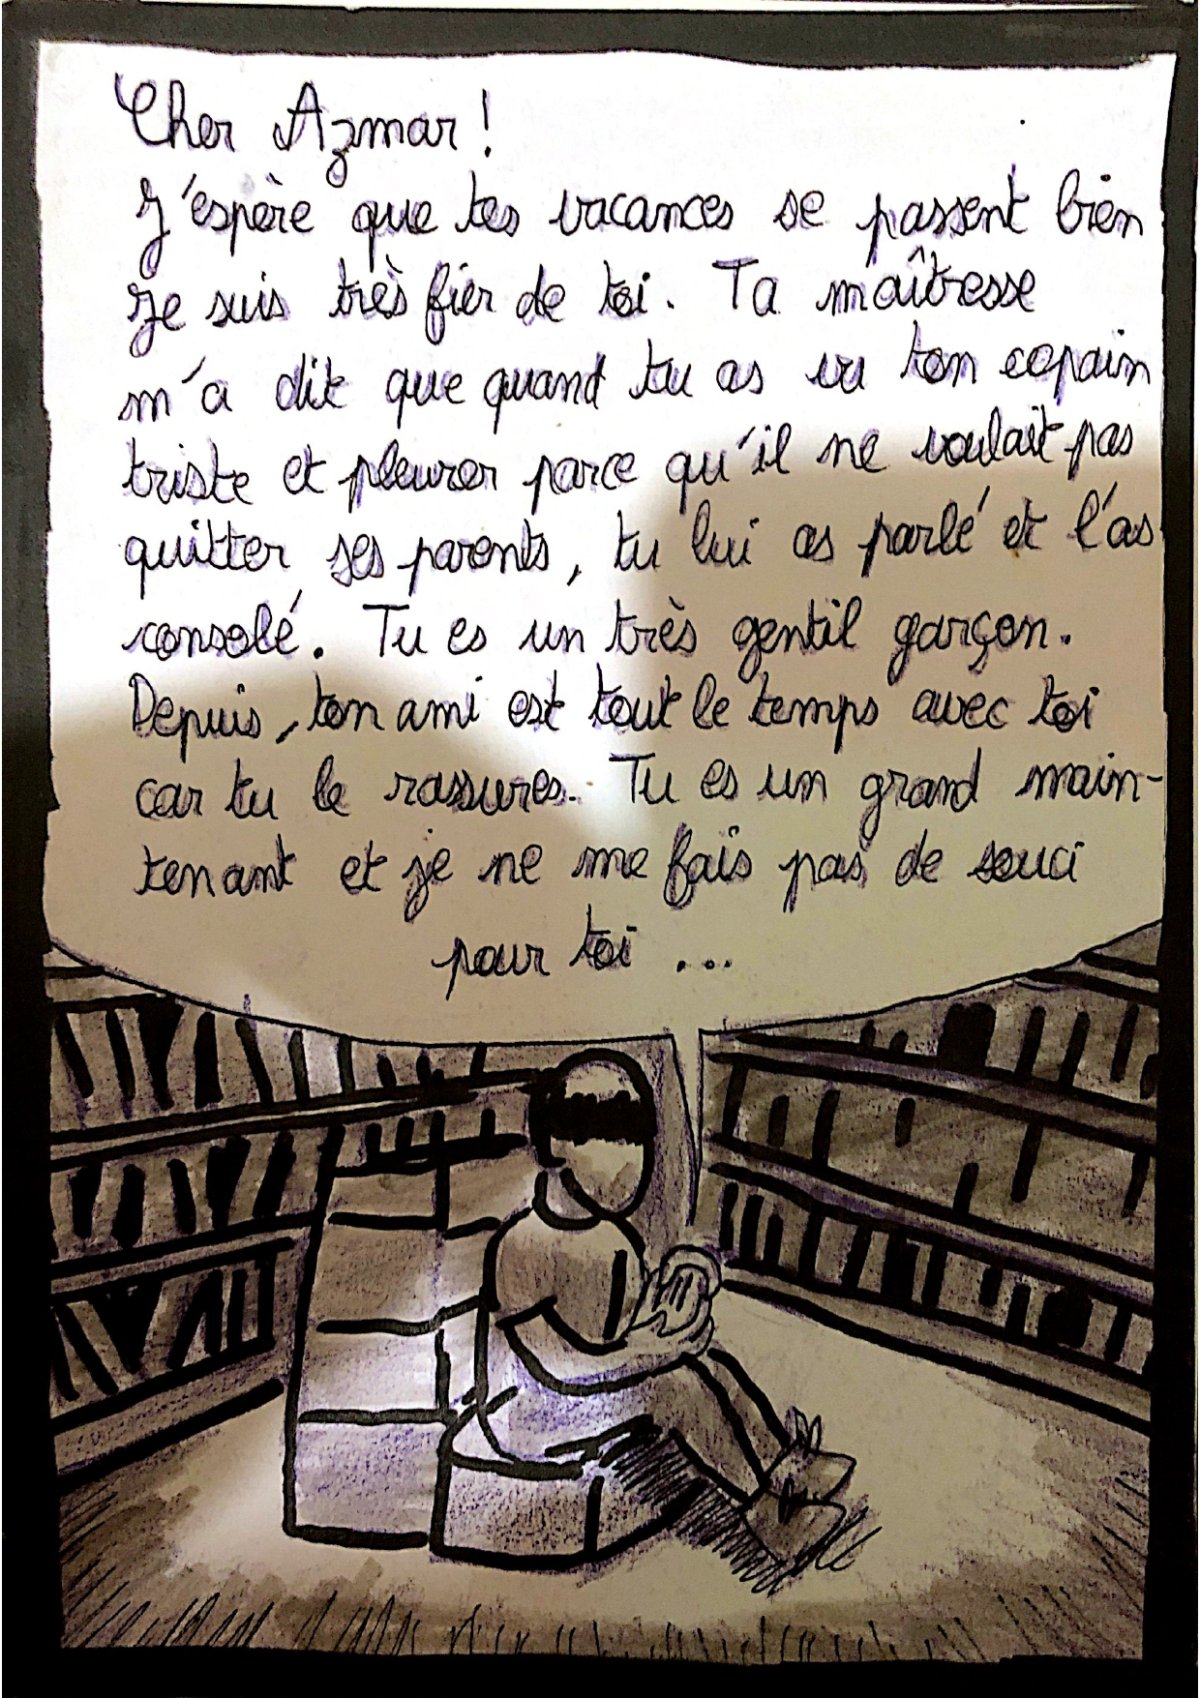 Cher Azmar !
J'espère que tes vacances se passent bien
Je suis très fier de toi. Ta maîtresse
m'a dit que quand tu as vu ton copain
triste et pleurer parce qu'il ne voulait pas
quitter ses parents, tu lui as parlé et l'as
consolé. Tu es un très gentil garçon.
Depuis, ton ami est tout le temps avec toi
car tu le rassures. Tu es un grand main-
tenant et je ne me fais pas de souci
pour toi ...